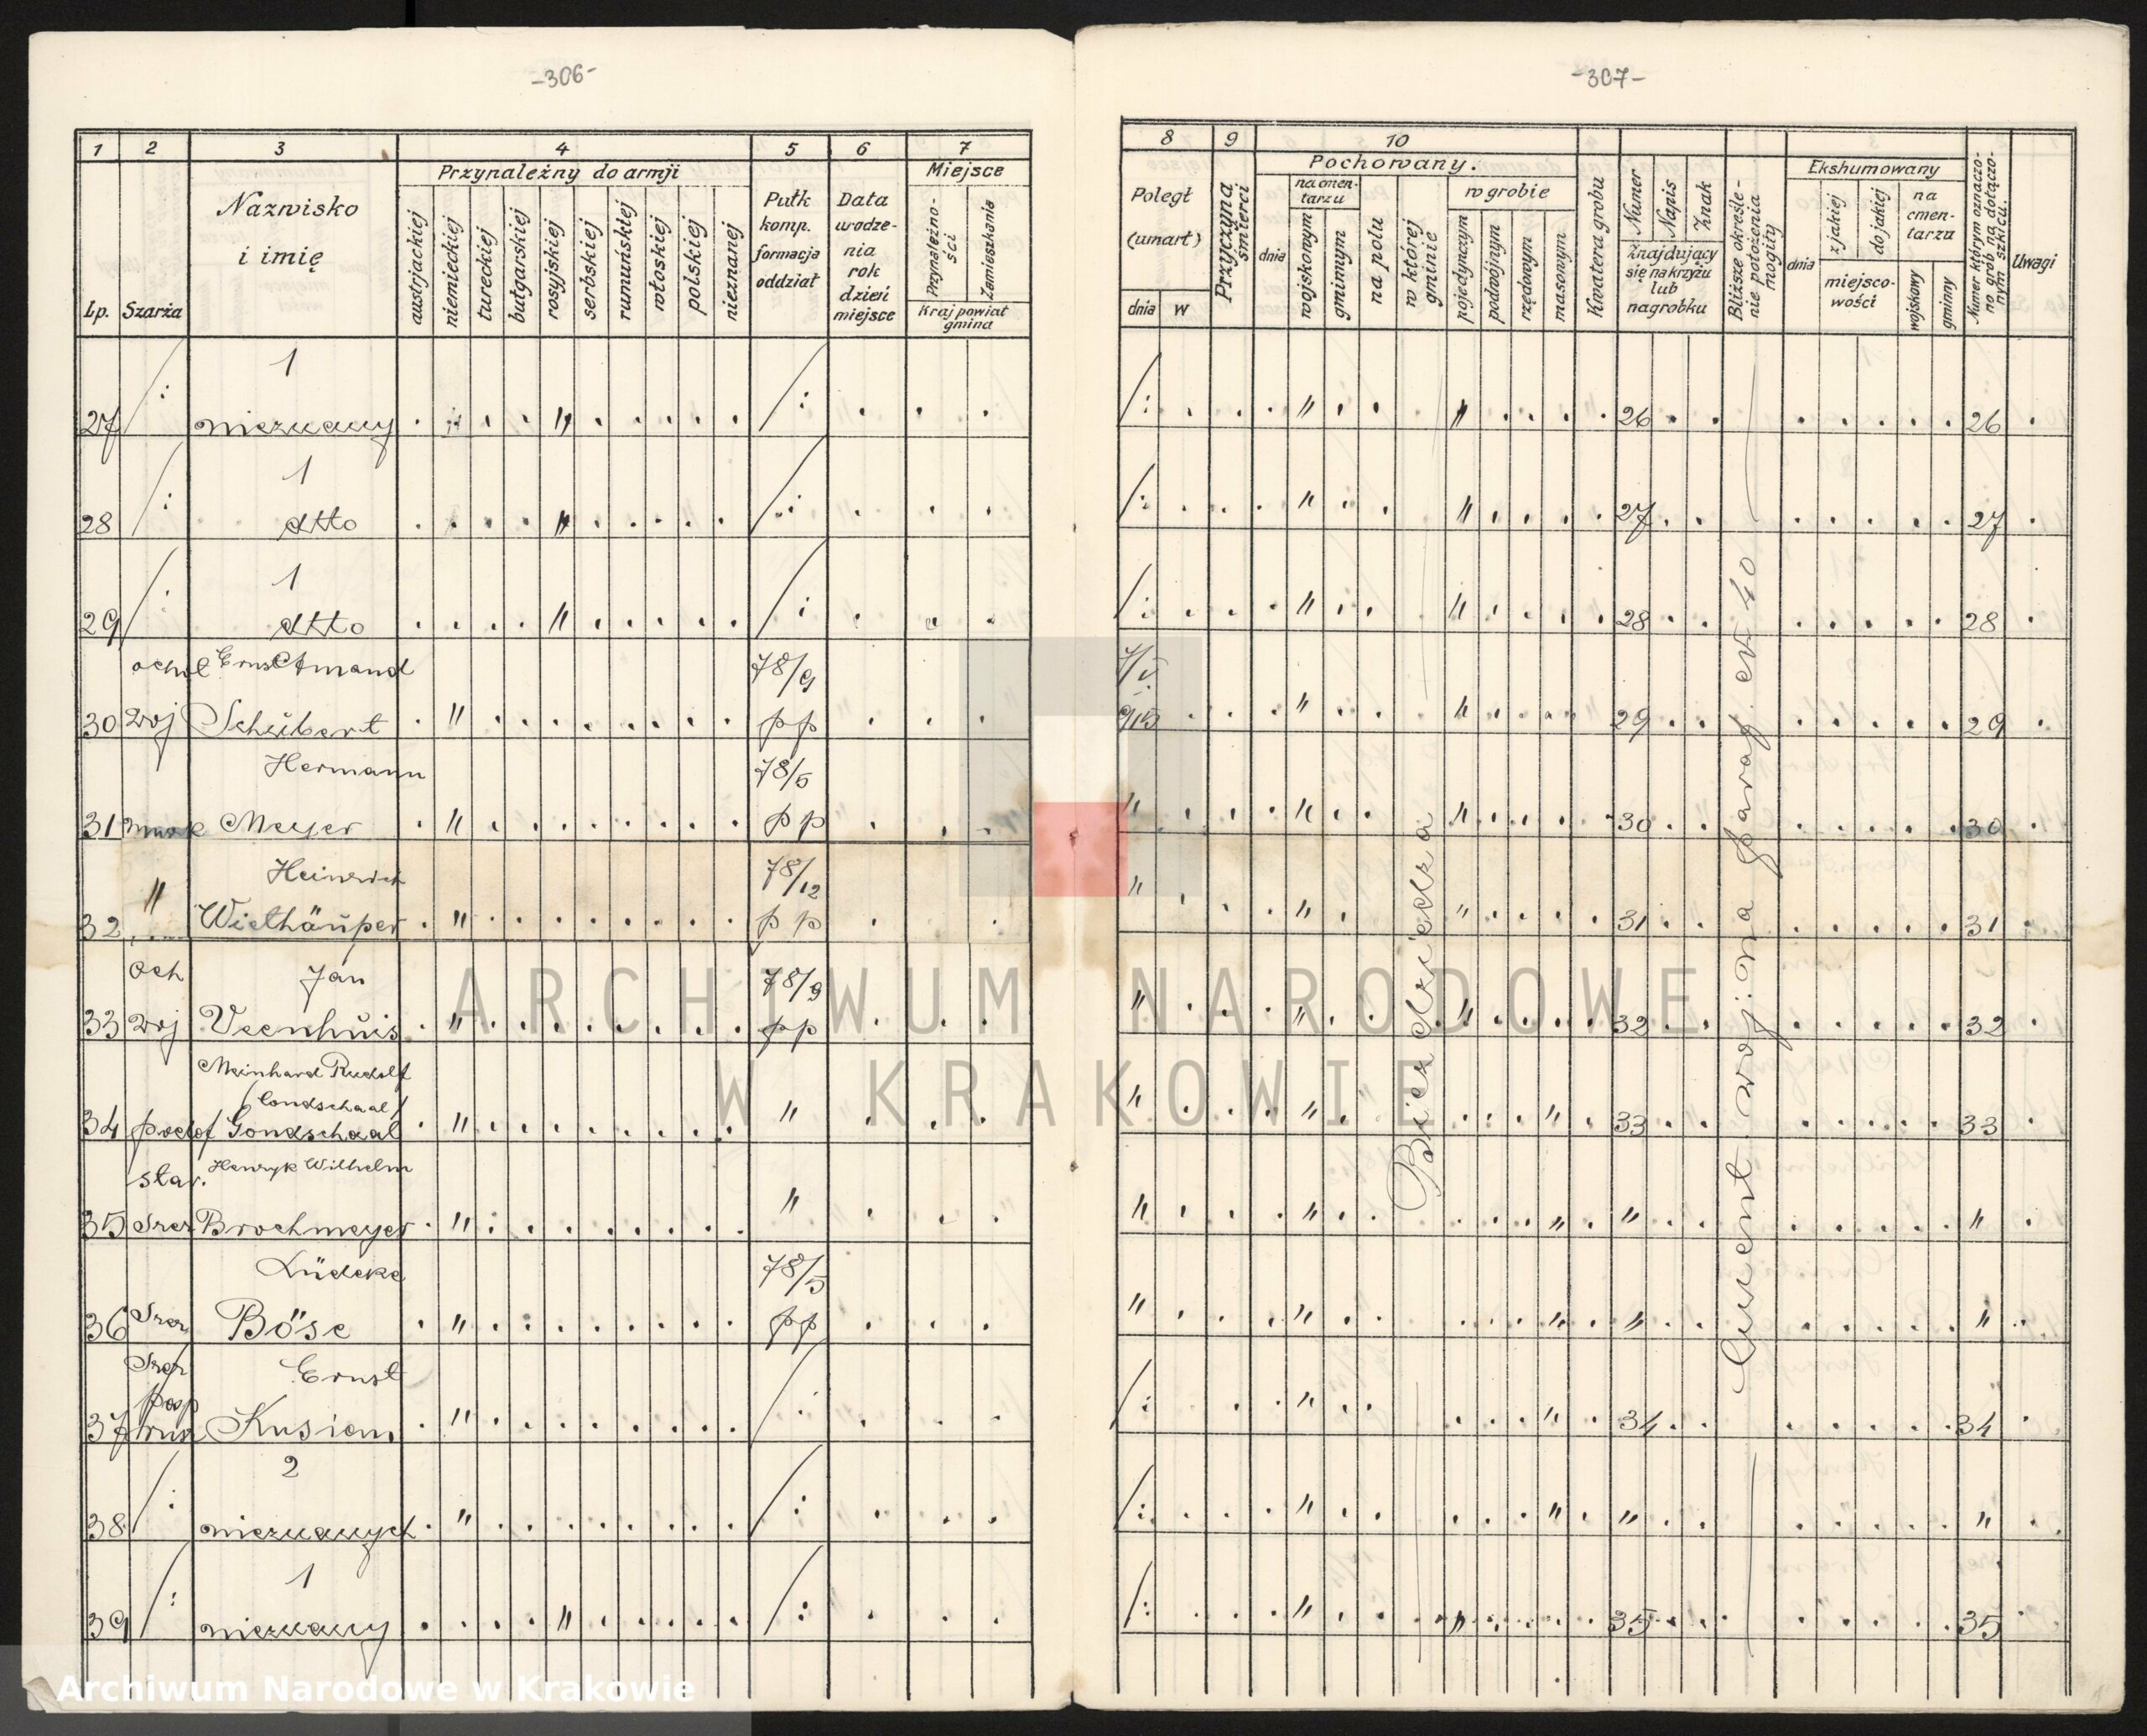 -306-
1 2 3 4 5 6 7
Lp.
Szarża
Nazwisko
i imię
Przynależny do armji
austrjackiej
niemieckiej
tureckiej
bułgarskiej
rosyjskiej
serbskiej
rumuńskiej
włoskiej
polskiej
nieznanej
Pułk
komp.
formacja
oddział
Data
urodze-
nia
rok
dzień
miejsce
Miejsce
Przynależno-
ści
Zamieszkania
Kraj powiat
gmina
1
27 /: nieznany . . . . " . . . . . /: . . .
1
28 /: dtto . . . . " . . . . . /: . . .
1
29 /: dtto . . . . " . . . . . /: . . .
78/9
30 woj Schübert . " . . . . . . . . pp . . .
Hermann 78/5
31 Meyer . " . . . . . . . . pp . . .
Heinrich 78/12
32 " Wiethäuper . " . . . . . . . . pp . .
och Jan 78/9
33 woj Veenhuis . " . . . . . . . . pp . . .
Meinhard Rudolf
/Condschaal/
34 podof Gondschaal . " . . . . . . . . " . . .
star. Henryk Wilhelm
35 Szer Brochmeyer . " . . . . . . . . " . . .
Lüdeke 78/5
36 Szer Böse . " . . . . . . . . pp . . .
Szer Ernst
posp
37 rusz . " . . . . . . . . /. . . .
2
38 /: nieznanych . " . . . . . . . . /: . . .
1
39 /: nieznany . . . . " . . . . . /: . . .
-307-
8 9 10
Poległ
(umarł)
dnia w
Przyczyna
śmierci
Pochowany.
dnia
na cmen-
tarzu
wojskowym
gminnym
na polu
w której
gminie
w grobie
pojedynczym
podwójnym
rzędowym
masowym
Kwatera grobu
Numer
Napis
Znak
Znajdujący
się na krzyżu
lub
nagrobku
Bliższe określe-
nie położenia
mogiły
Ekshumowany
dnia
z jakiej
do jakiej
miejsco-
wości
na
cmen-
tarzu
wojskowy
gminny
Numer którym oznaczo-
no grób na dołączo-
nym szkicu.
Uwagi
/: . . . " . . " . . . . 26 . . . . . . . 26 .
/: . . . " . . " . . . . 27 . . . . . . . 27 .
/: . . . " . . " . . . . 28 . . . . . . . 28 .
7/V
915 . . . " . . " . . . . 29 . . . . . . . 29 .
" . . . " . . " . . . . 30 . . . . . . . 30 .
" . . . " . " . . . . 31 . . . . . . . 31 .
" . . . " . . " . . . . 32 . . . . . . . 32 .
" . . . " . . . . " . 33 . . . . . . . 33 .
" . . . " . . . . . " . " . . . . . . . " .
" . . . " . . . . . " . " . . . . . . . " .
/: . . " . . . . . " . 34 . . . . . . . 34 .
/: . . . " . . . . . " . " . . . . . . . " .
/: . . . " . . " . . . . 35 . . . . . . . 35 .
Bierdziedza
Cment. woj. na parag. ew 40
ARCHIWUM NARODOWE
W KRAKOWIE
Archiwum Narodowe w Krakowie